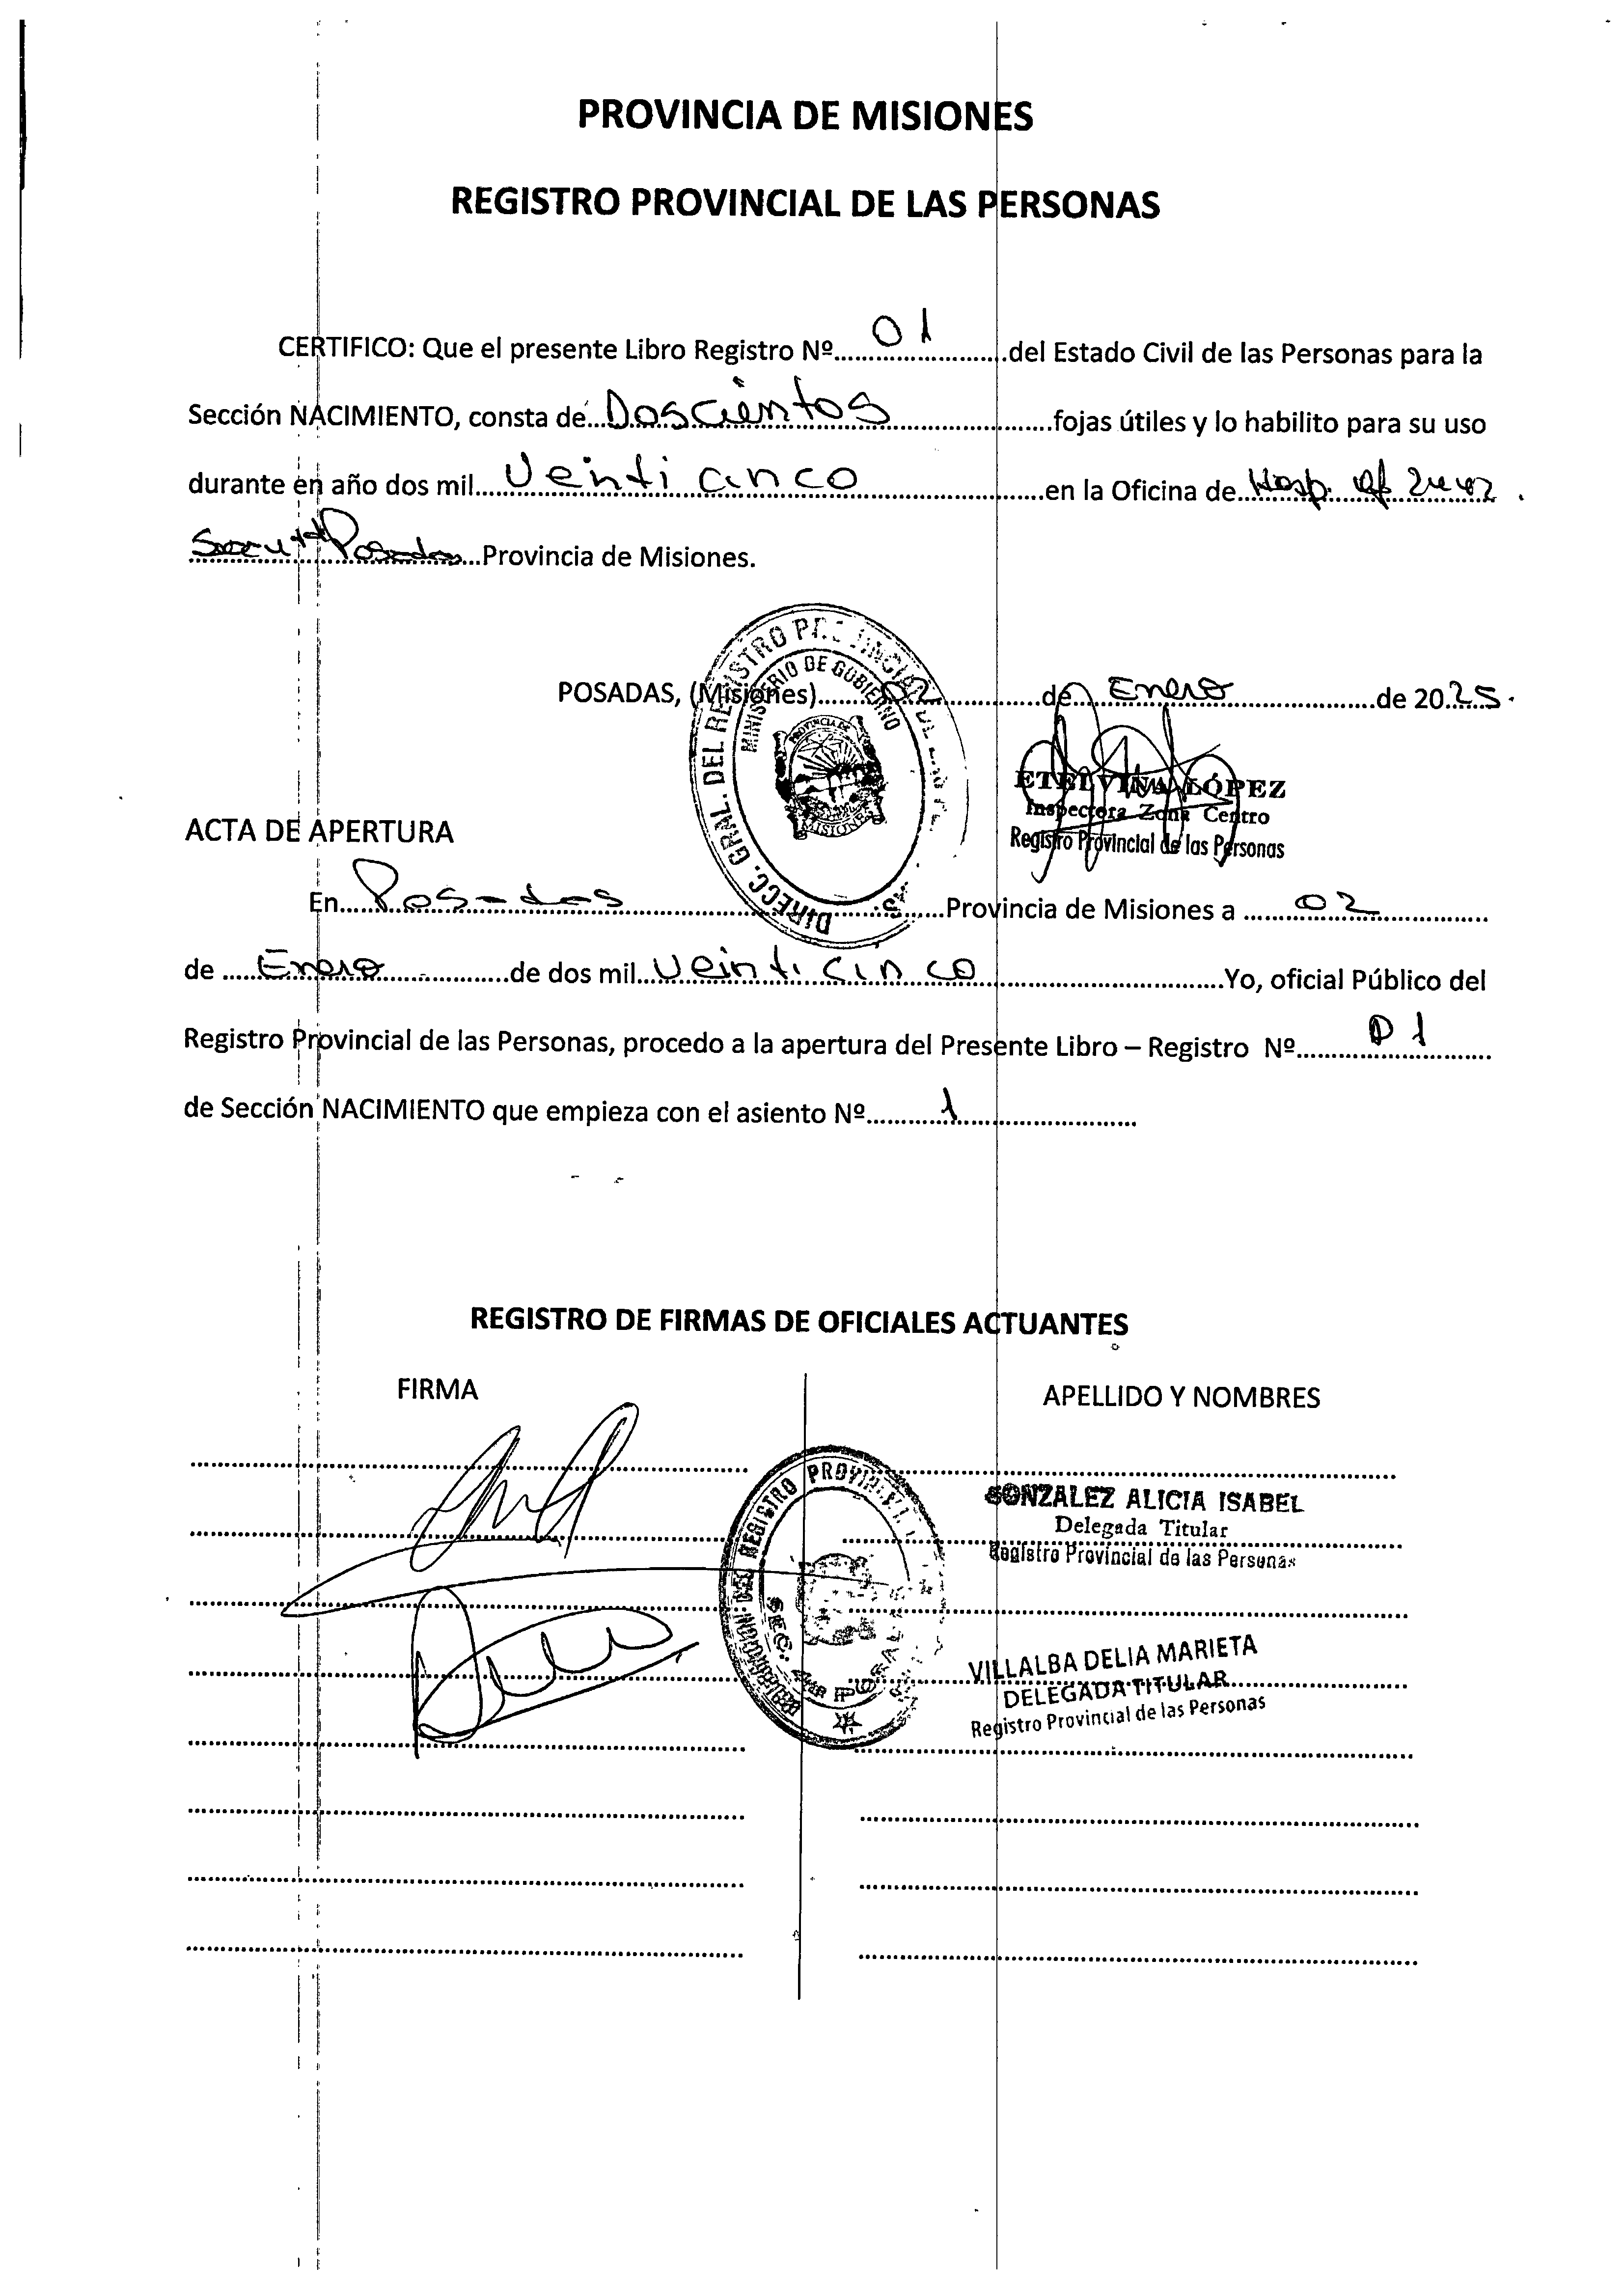 PROVINCIA DE MISIONES
REGISTRO PROVINCIAL DE LAS PERSONAS
CERTIFICO: Que el presente Libro Registro Nº 01 del Estado Civil de las Personas para la
Sección NACIMIENTO, consta de Doscientos fojas útiles y lo habilito para su uso
durante en año dos mil Veinti cinco en la Oficina de Hosp.
Posadas Provincia de Misiones.
POSADAS, (Misiones) 02 de Enero de 2025.
DIRECC. GRAL. DEL REGISTRO PROVINCIAL DE LAS
MINISTERIO DE GOBIERNO
PROVINCIA DE
MISIONES
ETELVINA LÓPEZ
Inspectora Zona Centro
Registro Provincial de las Personas
ACTA DE APERTURA
En Posadas Provincia de Misiones a 02
de Enero de dos mil Veinti cinco Yo, oficial Público del
Registro Provincial de las Personas, procedo a la apertura del Presente Libro – Registro Nº 01
de Sección NACIMIENTO que empieza con el asiento Nº 1
REGISTRO DE FIRMAS DE OFICIALES ACTUANTES
FIRMA APELLIDO Y NOMBRES
GONZALEZ ALICIA ISABEL
Delegada Titular
Registro Provincial de las Personas
VILLALBA DELIA MARIETA
DELEGADA TITULAR
Registro Provincial de las Personas